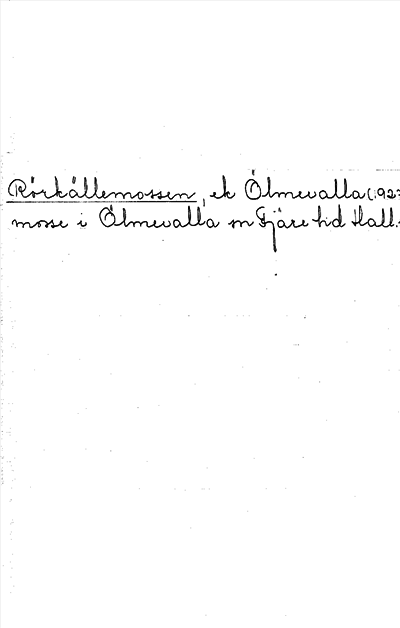 Rörkällemossen, ek Ölmevalla (:927
mosse i Ölmevalla sn Fjäre hd Hall.